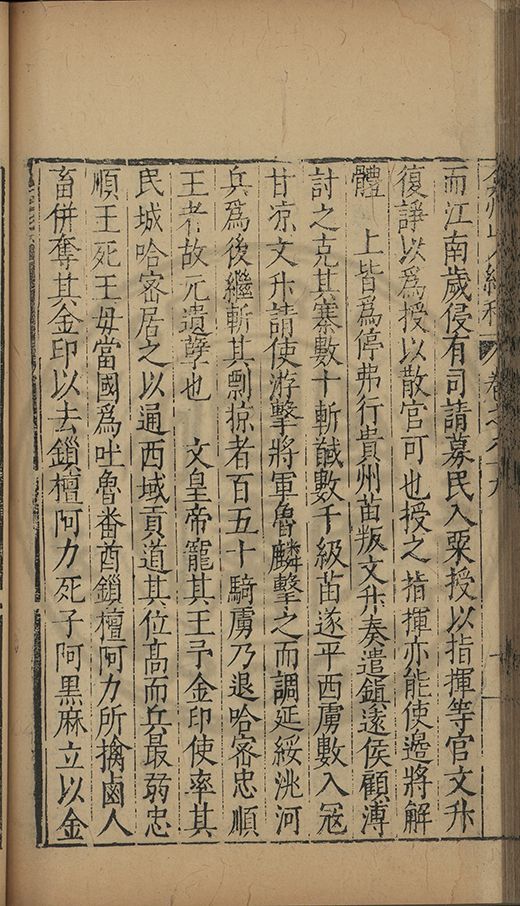 而江南歲侵有司請募民入粟授以指揮等官文升
復諍以爲授以散官可也授之指揮亦能使邊將解
體　上皆爲停弗行貴州苗叛文升奏遣鎮遠侯顧溥
討之克其寨數十斬馘數千級苗遂平西虜數入冦
甘凉文升請使游擊將軍魯麟擊之而調延綏洮河
兵爲後繼斬其剽掠者百五十騎虜乃退哈密忠順
王者故元遺孽也　文皇帝寵其王予金印使率其
民城哈密居之以通西域貢道其位高而兵最弱忠
順王死王毋當國爲吐魯番酋鎖檀阿力所擒鹵人
畜併奪其金印以去鎖檀阿力死子阿黑麻立以金